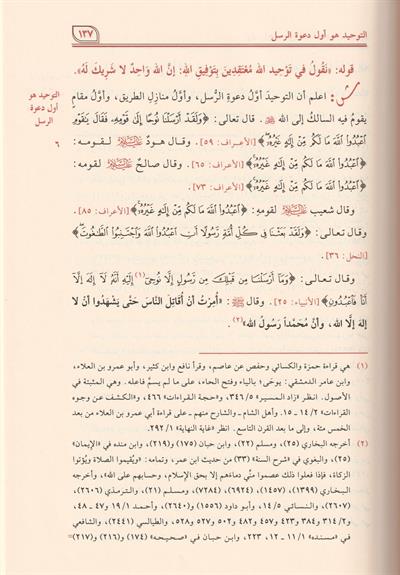 التوحيد هو أول دعوة الرسل
١٣٧
قوله: «نَقُولُ في تَوْحِيدِ الله مُعْتَقِدِينَ بِتَوْفِيقِ اللهِ: إنَّ الله وَاحِدٌ لا شَرِيكَ لَهُ».
التوحيد هو أول دعوة الرسل
٦
ش: اعلم أن التوحيدَ أوَّلُ دعوةِ الرُّسل، وأوَّلُ منازِلِ الطريق، وأوَّلُ مقامٍ
يقومُ فيه السالكُ إلى الله ﷻ. قال تعالى: ﴿وَلَقَدْ أَرْسَلْنَا نُوحًا إِلَى قَوْمِهِۦ فَقَالَ يَٰقَوْمِ
ٱعْبُدُوا۟ ٱللَّهَ مَا لَكُم مِّنْ إِلَٰهٍ غَيْرُهُۥٓ﴾ [الأعراف: ٥٩]. وقال هودٌ عليه السلام لقومه:
﴿ٱعْبُدُوا۟ ٱللَّهَ مَا لَكُم مِّنْ إِلَٰهٍ غَيْرُهُۥٓ﴾ [الأعراف: ٦٥]. وقال صالحٌ عليه السلام لقومه:
﴿ٱعْبُدُوا۟ ٱللَّهَ مَا لَكُم مِّنْ إِلَٰهٍ غَيْرُهُۥ﴾ [الأعراف: ٧٣].
وقال شعيب عليه السلام لقومهِ: ﴿ٱعْبُدُوا۟ ٱللَّهَ مَا لَكُم مِّنْ إِلَٰهٍ غَيْرُهُۥ﴾ [الأعراف: ٨٥].
وقال تعالى: ﴿وَلَقَدْ بَعَثْنَا فِى كُلِّ أُمَّةٍ رَّسُولًا أَنِ ٱعْبُدُوا۟ ٱللَّهَ وَٱجْتَنِبُوا۟ ٱلطَّٰغُوتَ﴾
[النحل: ٣٦].
وقال تعالى: ﴿وَمَآ أَرْسَلْنَا مِن قَبْلِكَ مِن رَّسُولٍ إِلَّا نُوحِىٓ(١) إِلَيْهِ أَنَّهُۥ لَآ إِلَٰهَ إِلَّآ
أَنَا۠ فَٱعْبُدُونِ﴾ [الأنبياء: ٢٥]. وقال ﷺ: «أُمِرْتُ أنْ أُقَاتِلَ النَّاسَ حَتَّى يَشْهَدُوا أنْ لا
إلهَ إلَّا الله، وأنَّ مُحَمَّداً رَسُولُ الله»(٢).
(١) هي قراءة حمزة والكسائي وحفص عن عاصم، وقرأ نافع وابن كثير، وأبو عمرو بن العلاء،
وابن عامر الدمشقي: يوحَى؛ بالياء وفتح الحاء، على ما لم يسمَّ فاعله. وهي المثبتة في
الأصول. انظر «زاد المسير» ٣٤٦/٥، و«حجة القراءات» ٤٦٦، و«الكشف عن وجوه
القراءات» ١٤/٢ ـ ١٥. وأهل الشام ـ والشارح منهم ـ على قراءة أبي عمرو بن العلاء من بعد
الخمس مئة، وإلى ما بعد القرن التاسع. انظر «غاية النهاية» ٢٩٢/١.
(٢) أخرجه البخاري (٢٥)، ومسلم (٢٢)، وابن حبان (١٧٥) و(٢١٩)، وابن منده في «الإيمان»
(٢٥)، والبغوي في «شرح السنة» (٣٣) من حديث ابن عمر، وتمامه: «ويُقيموا الصلاة ويُؤتوا
الزكاة، فإذا فعلوا ذلك عصموا منِّي دماءَهم إلا بحق الإسلام، وحسابهم على الله»، وأخرجه
البخاري (١٣٩٩)، (١٤٥٧)، (٦٩٢٤)، (٧٢٨٤)، ومسلم (٢١)، والترمذي (٢٦٠٦)،
(٢٦٠٧)، والنسائي ١٤/٥، وأبو داود (١٥٥٦) و(٢٦٤٠)، وأحمد ١٩/١ و٤٧ ـ ٤٨،
و٣١٤/٢ و٣٨٤ و٤٢٣ و٤٥٧ و٤٨٢ و٥٠٢ و٥٢٧ و٥٢٨، والطيالسي (٢٤٤١)، والشافعي
في «مسنده» ١١/١ ـ ١٢، ٢٢٣، وابن حبان في «صحيحه» (١٧٤) و(٢١٦) و(٢١٧)=